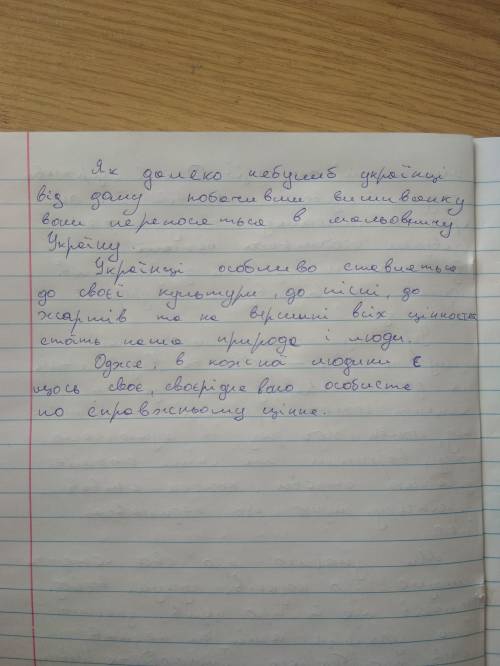 Як далеко небулиб українці
від дому побачивши вишиванку
вони переносяться в мальовничу
Україну.
Українці особливо ставляться
до своєї культури, до пісні, до
жартів та на вершині всіх цінностей
стать наша природа і люди.
Одже, в кожна людини є
щось своє, своєрідне воно особисте
по справжньому цінне.